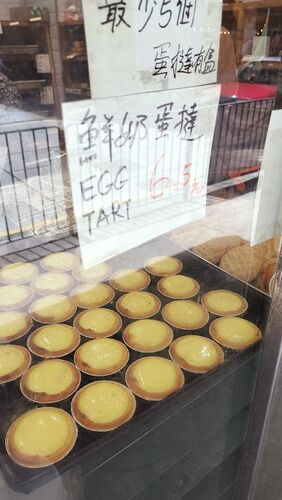 最少5個
蛋撻有盒
鮮奶蛋撻
EGG 6.5元
TART